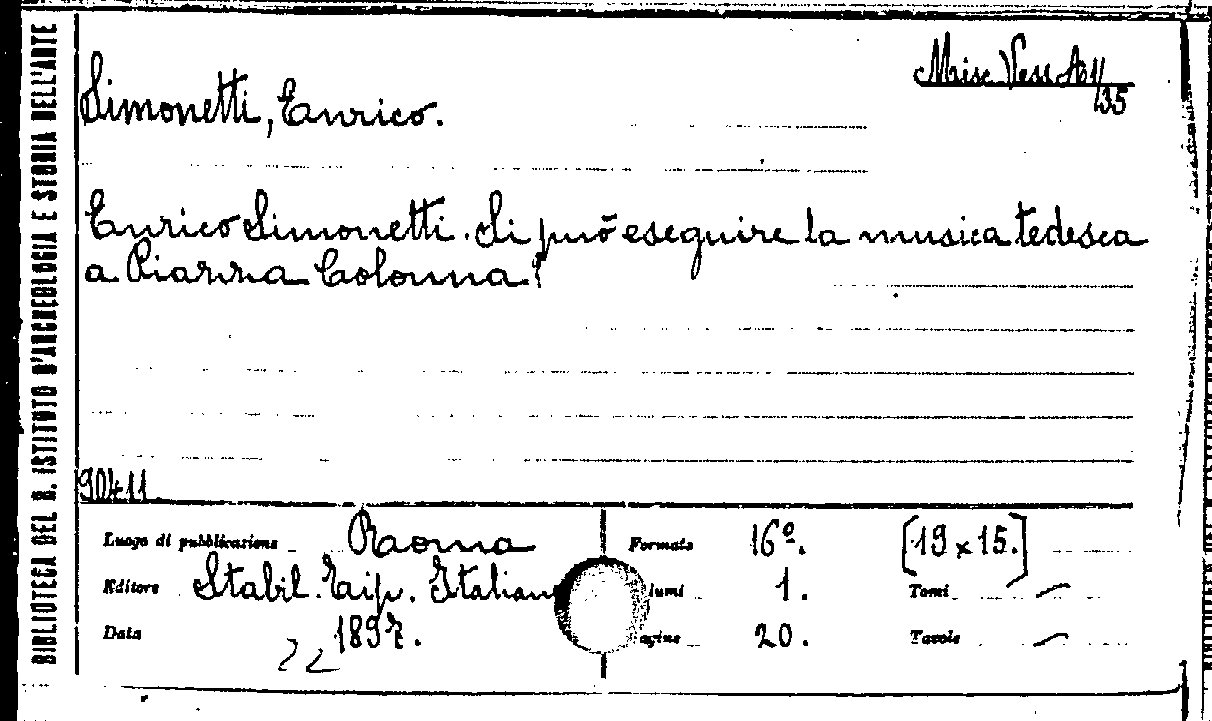 BIBLIOTECA DEL R. ISTITUTO D'ARCHEOLOGIA E STORIA DELL'ARTE
Misc. Vess A 1/35
Simonetti, Enrico.
Enrico Simonetti. Si può eseguire la musica tedesca
a Piazza Colonna?
90411
Luogo di pubblicazione Roma Formato 16º. [19 x 15.]
Editore Stabil. Tip. Italiano lumi 1. Tomi —
Data 1897. agine 20. Tavole —
22